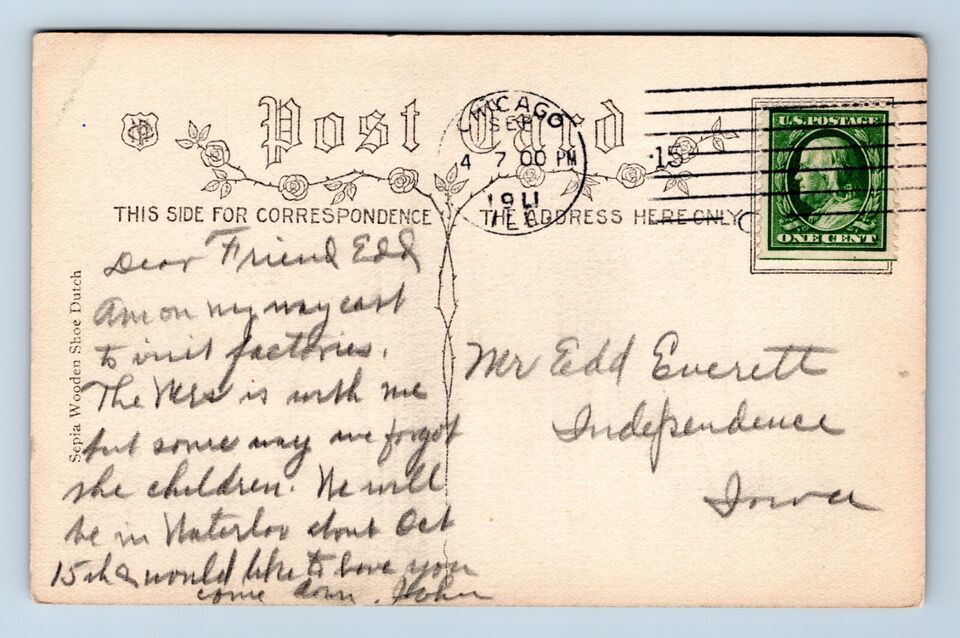 Post Card
CHICAGO
SEP
4 7 00 PM
1911
ILL
15
U.S. POSTAGE
ONE CENT
THIS SIDE FOR CORRESPONDENCE
THE ADDRESS HERE ONLY
Sepia Wooden Shoe Dutch
Dear Friend Edd
Am on my way east
to visit factories.
The Mrs is with me
but some way we forgot
the children. We will
be in Waterloo about Oct
15th & would like to have you
come down. John
Mr Edd Everett
Independence
Iowa